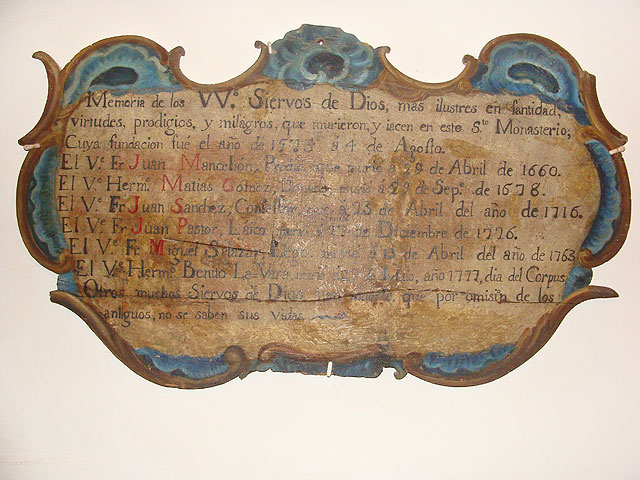 Memoria de los VVˢ Siervos de Dios, mas ilustres en santidad,
virtudes, prodigios, y milagros, que murieron, y iacen en este S.ᵗᵒ Monasterio,
Cuya fundacion fue el año de 1573 a 4 de Agosto.
El V.ᵉ Fr Juan Mancebon, que à 29 de Abril de 1660.
El V.ᵉ Herm.ᵒ Matias Gomez, murio à 22 de Sep.ᵉ de 1678.
El V.ᵉ Fr Juan Sanchez, Confessor que à 23 de Abril del año de 1716.
El V.ᵉ Fr Juan Pastor, Laico, murio à 27 de Diciembre de 1726.
El V.ᵉ Fr Miguel Salazar, à 13 de Abril del año de 1763
El V.ᵉ Herm.ᵒ Benito La Vira año 1777, dia del Corpus
Otros muchos Siervos de Dios que por omisiñ de los
antiguos, no se saben sus Vidas